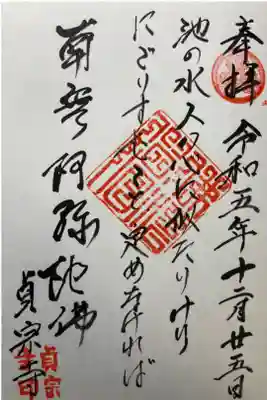 奉拝 令和五年十二月廿五日
池の水人の心に似たりけり
にごりすむこと定めなければ
南無阿弥陀佛
貞宗寺
貞宗寺印